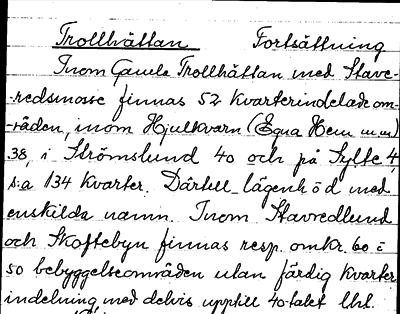 Trollhättan Fortsättning
Inom Gamla Trollhättan med Stave-
-redsmosse finnas 52 kvarterindelade om-
-råden, inom Hjulkvarn (Egna Hem m.m)
38, i Strömslund 40 och på Sylte 4,
s:a 134 kvarter. Därtill lägenh ö d med
enskilda namn. Inom Stavredlund
och Skoftebyn finnas resp. omkr. 60 =
50 bebyggelseområden utan färdig kvarter
indelning, med delvis upptill 40-talet lht.